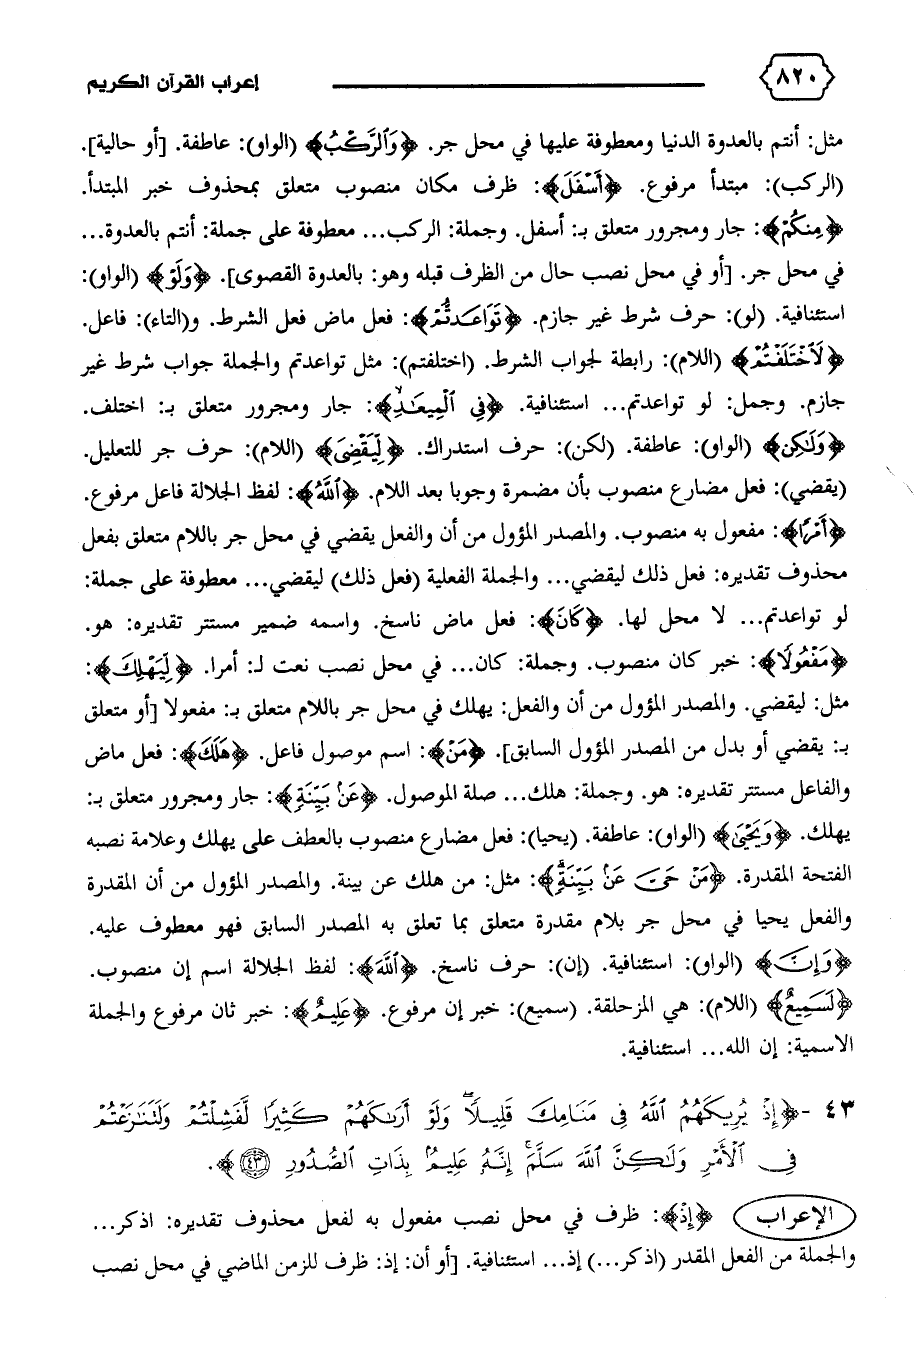 ٨٢٠ إعراب القرآن الكريم
مثل: أنتم بالعدوة الدنيا ومعطوفة عليها في محل جر. ﴿وَٱلرَّكْبُ﴾ (الواو): عاطفة. [أو حالية].
(الركب): مبتدأ مرفوع. ﴿أَسْفَلَ﴾: ظرف مكان منصوب متعلق بمحذوف خبر المبتدأ.
﴿مِنكُمْ﴾: جار ومجرور متعلق بـ: أسفل. وجملة: الركب... معطوفة على جملة: أنتم بالعدوة...
في محل جر. [أو في محل نصب حال من الظرف قبله وهو: بالعدوة القصوى]. ﴿وَلَوْ﴾ (الواو):
استئنافية. (لو): حرف شرط غير جازم. ﴿تَوَاعَدتُّمْ﴾: فعل ماض فعل الشرط. و(التاء): فاعل.
﴿لَٱخْتَلَفْتُمْ﴾ (اللام): رابطة لجواب الشرط. (اختلفتم): مثل تواعدتم والجملة جواب شرط غير
جازم. وجمل: لو تواعدتم... استئنافية. ﴿فِي ٱلْمِيعَٰدِ﴾: جار ومجرور متعلق بـ: اختلف.
﴿وَلَٰكِن﴾ (الواو): عاطفة. (لكن): حرف استدراك. ﴿لِّيَقْضِىَ﴾ (اللام): حرف جر للتعليل.
(يقضي): فعل مضارع منصوب بأن مضمرة وجوبا بعد اللام. ﴿ٱللَّهُ﴾: لفظ الجلالة فاعل مرفوع.
﴿أَمْرًا﴾: مفعول به منصوب. والمصدر المؤول من أن والفعل يقضي في محل جر باللام متعلق بفعل
محذوف تقديره: فعل ذلك ليقضي... والجملة الفعلية (فعل ذلك) ليقضي... معطوفة على جملة:
لو تواعدتم... لا محل لها. ﴿كَانَ﴾: فعل ماض ناسخ. واسمه ضمير مستتر تقديره: هو.
﴿مَفْعُولًا﴾: خبر كان منصوب. وجملة: كان... في محل نصب نعت لـ: أمرا. ﴿لِّيَهْلِكَ﴾:
مثل: ليقضي. والمصدر المؤول من أن والفعل: يهلك في محل جر باللام متعلق بـ: مفعولا [أو متعلق
بـ: يقضي أو بدل من المصدر المؤول السابق]. ﴿مَنْ﴾: اسم موصول فاعل. ﴿هَلَكَ﴾: فعل ماض
والفاعل مستتر تقديره: هو. وجملة: هلك... صلة الموصول. ﴿عَنۢ بَيِّنَةٍ﴾: جار ومجرور متعلق بـ:
يهلك. ﴿وَيَحْيَىٰ﴾ (الواو): عاطفة. (يحيا): فعل مضارع منصوب بالعطف على يهلك وعلامة نصبه
الفتحة المقدرة. ﴿مَنْ حَىَّ عَنۢ بَيِّنَةٍ﴾: مثل: من هلك عن بينة. والمصدر المؤول من أن المقدرة
والفعل يحيا في محل جر بلام مقدرة متعلق بما تعلق به المصدر السابق فهو معطوف عليه.
﴿وَإِنَّ﴾ (الواو): استئنافية. (إن): حرف ناسخ. ﴿ٱللَّهَ﴾: لفظ الجلالة اسم إن منصوب.
﴿لَسَمِيعٌ﴾ (اللام): هي المزحلقة. (سميع): خبر إن مرفوع. ﴿عَلِيمٌ﴾: خبر ثان مرفوع والجملة
الاسمية: إن الله... استئنافية.
٤٣ -﴿إِذْ يُرِيكَهُمُ ٱللَّهُ فِى مَنَامِكَ قَلِيلًا ۖ وَلَوْ أَرَىٰكَهُمْ كَثِيرًا لَّفَشِلْتُمْ وَلَتَنَٰزَعْتُمْ
فِى ٱلْأَمْرِ وَلَٰكِنَّ ٱللَّهَ سَلَّمَ ۗ إِنَّهُۥ عَلِيمٌۢ بِذَاتِ ٱلصُّدُورِ ٤٣﴾.
الإعراب ﴿إِذْ﴾: ظرف في محل نصب مفعول به لفعل محذوف تقديره: اذكر...
والجملة من الفعل المقدر (اذكر...) إذ... استئنافية. [أو أن: إذ: ظرف للزمن الماضي في محل نصب